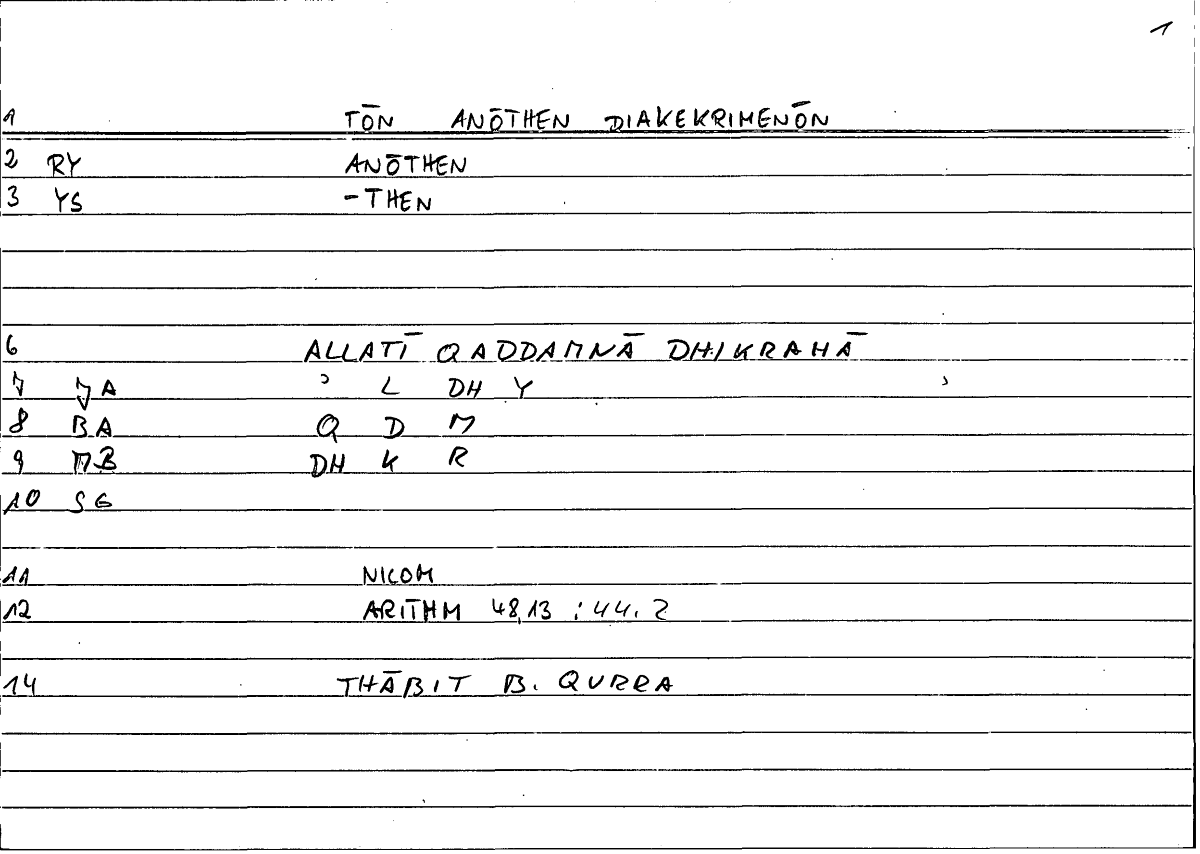 1
1 TŌN ANŌTHEN DIAKEKRIMENŌN
2 RY ANŌTHEN
3 YS -THEN
6 ALLATĪ QADDAMNĀ DHIKRAHĀ
7 JA ʾ L DH Y
8 BA Q D M
9 MB DH K R
10 SG
11 NICOM
12 ARITHM 48,13 : 44.2
14 THĀBIT B. QURRA